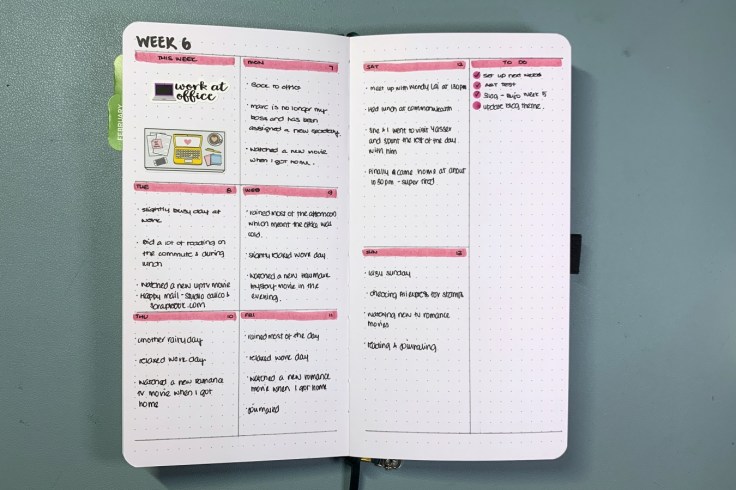 WEEK 6
THIS WEEK
work at
office
FEBRUARY
MON 7
· Back to office
· Marc is no longer my
boss and has been
assigned a new secretary.
· Watched a new movie
when I got home.
TUE 8
· Slightly busy day at
work
· Did a lot of reading on
the commute & during
lunch
· Watched a new UPTV movie
· Happy mail - Studio Calico &
Scrapbook.com
WED 9
· Rained most of the afternoon
which meant the office was
cold.
· Slightly relaxed work day
· Watched a new Hallmark
mystery movie in the
evening.
THU 10
· Another rainy day
· relaxed work day
· Watched a new romance
tv movie when I got
home
FRI 11
· rained most of the day
· relaxed work day
· Watched a new romance
movie when I got home
· Journaled
SAT 12
· Meet up with Wendy at 130pm
· Had lunch at Commonwealth
· She & I went to visit Yasser
and spent the rest of the day
with him
· Finally came home at about
1030pm - super tired.
SUN 13
· Lazy Sunday
· Watching new tv romance
movies
· Reading & Journaling
TO DO
Set up next week
ART TEST
Blog - Bujo Week 5
update blog theme.